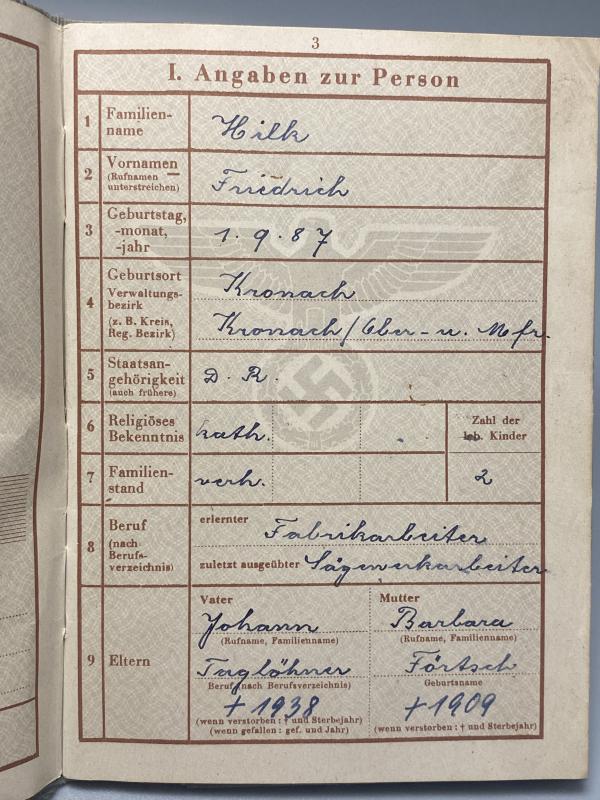 3
I. Angaben zur Person
1 Familien-
name
Hilk
2 Vornamen
(Rufnamen
unterstreichen)
Friedrich
3 Geburtstag,
-monat,
-jahr
1. 9. 87
4 Geburtsort
Verwaltungs-
bezirk
(z. B. Kreis,
Reg. Bezirk)
Kronach
Kronach/Ober- u. Mfr.
5 Staatsan-
gehörigkeit
(auch frühere)
D. R.
6 Religiöses
Bekenntnis
kath.
Zahl der
leb. Kinder
7 Familien-
stand
verh.
2
8 Beruf
(nach
Berufs-
verzeichnis)
erlernter Fabrikarbeiter
zuletzt ausgeübter Sägewerkarbeiter
9 Eltern
Vater
Johann
(Rufname, Familienname)
Taglöhner
Beruf (nach Berufsverzeichnis)
† 1938
(wenn verstorben: † und Sterbejahr)
(wenn gefallen: gef. und Jahr)
Mutter
Barbara
(Rufname, Familienname)
Förtsch
Geburtsname
† 1909
(wenn verstorben: † und Sterbejahr)